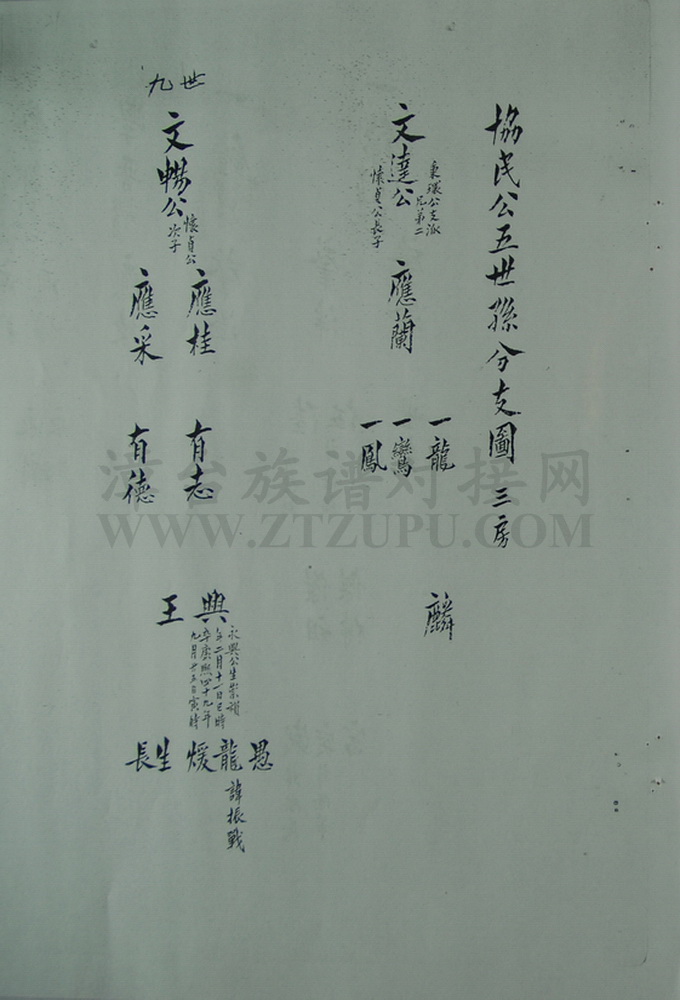 協民公五世孫分支圖 三房
文達公
秉環公支派
兄弟二
懷貞公長子
應蘭
一龍
一鸞
一鳳
麟
九世
文暢公
懷貞公
次子
應桂
應采
有志
有德
興
王
永興公生崇禎
年二月十一日巳時
卒康熙四十九年
九月廿五日寅時
愚
龍
煖
生
長
諱振戰
漳台族谱对接网
WWW.ZTZUPU.COM